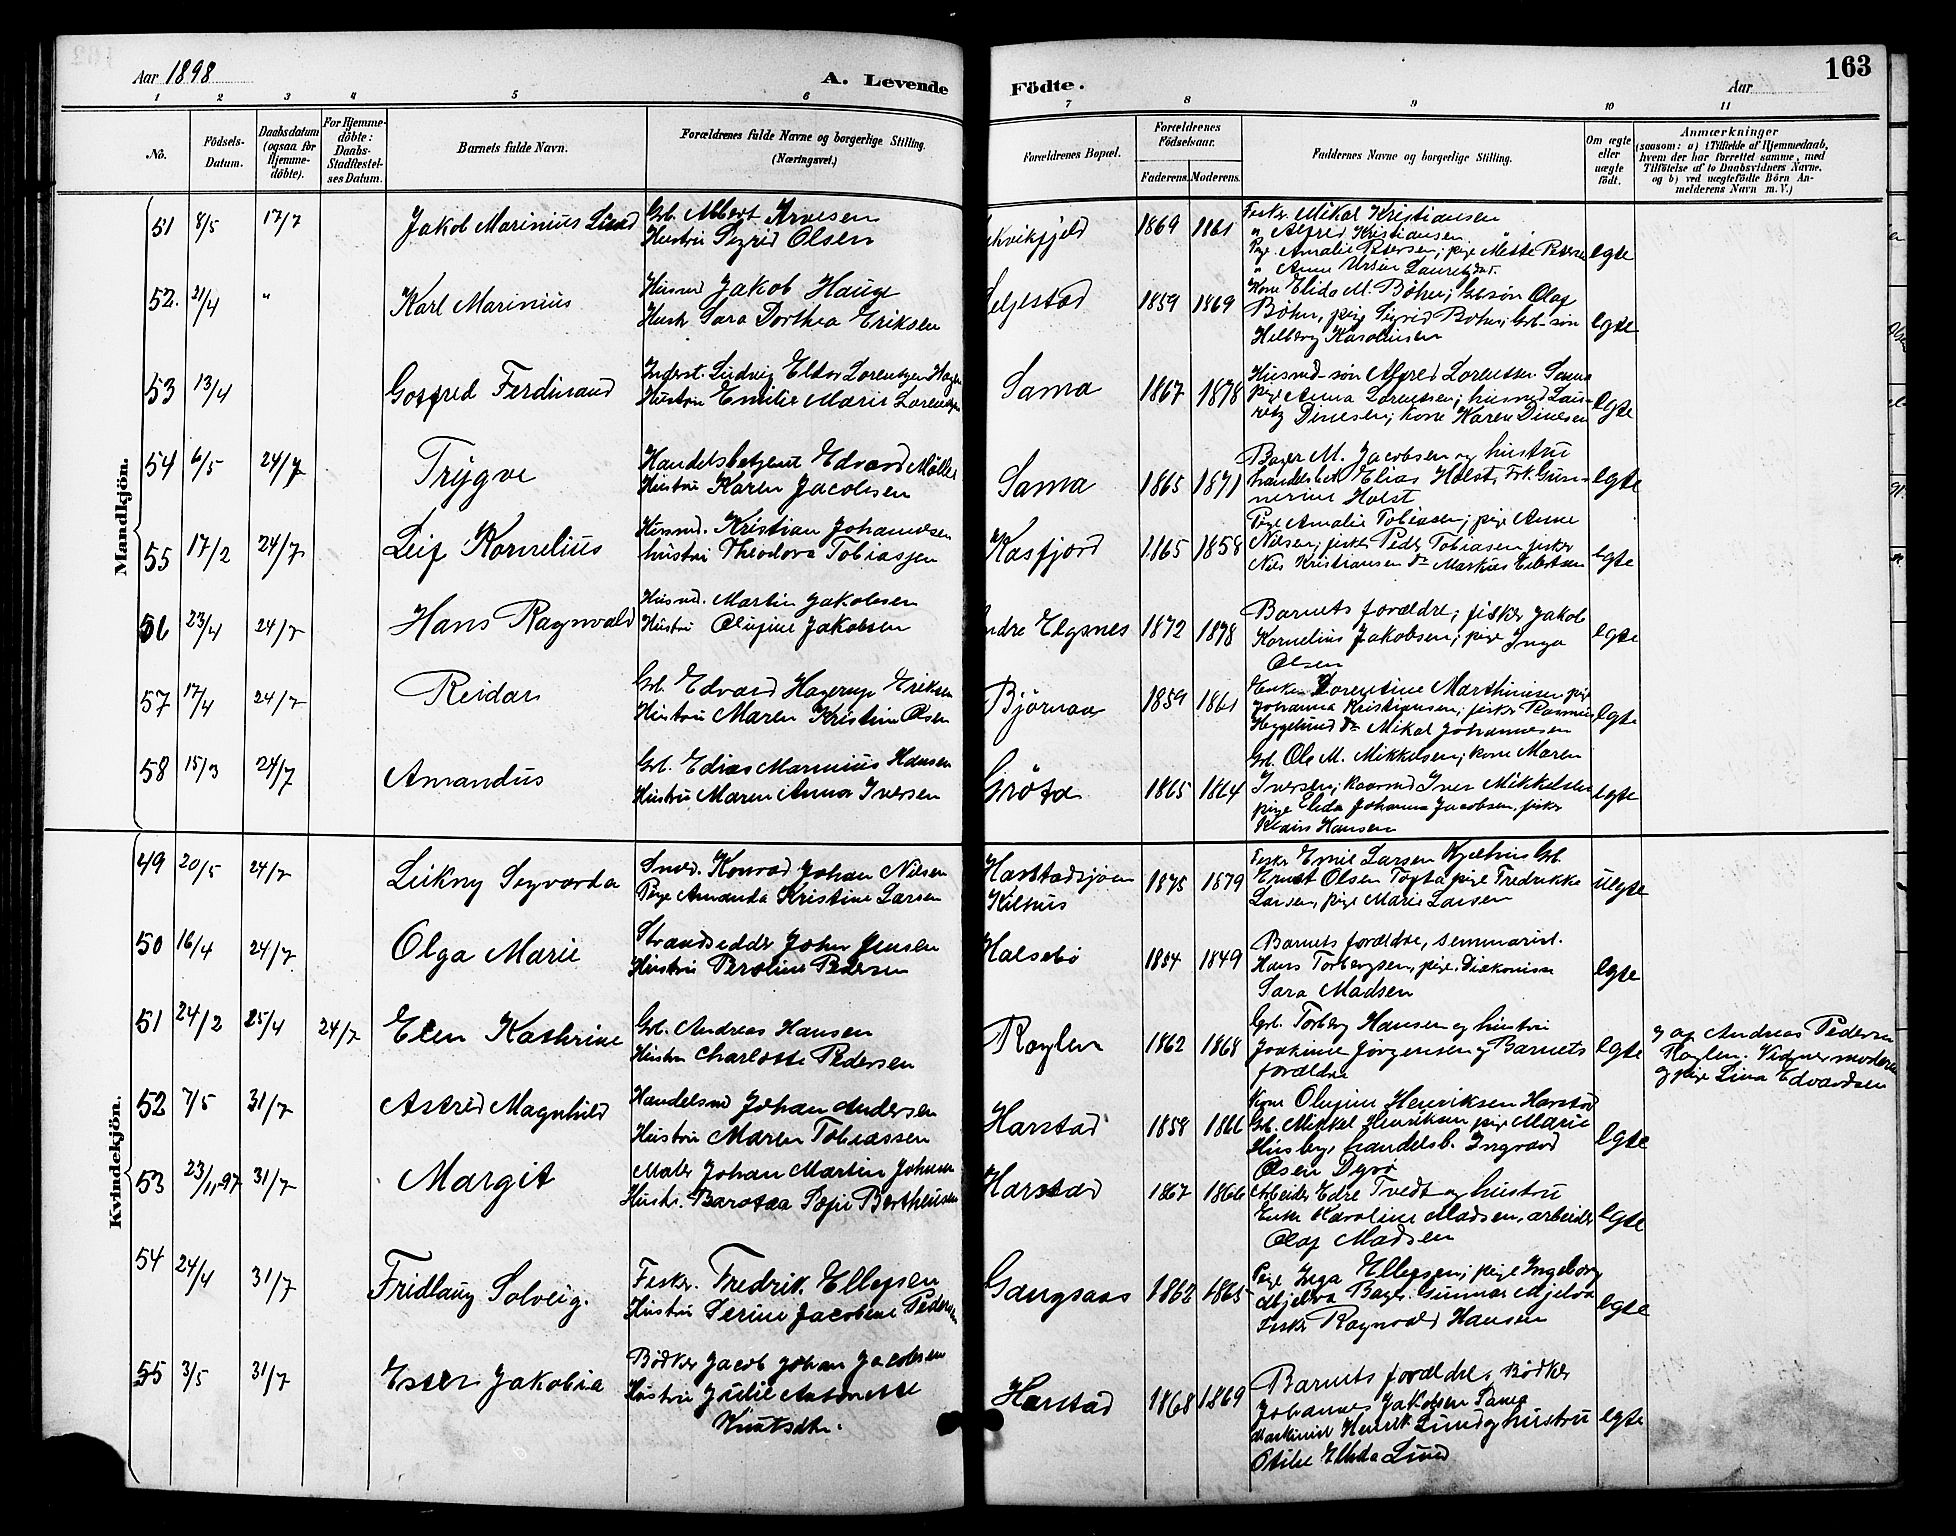 Aar 1898
A. Levende
Födte.
Aar
163
1 2 3 4 5 6 7 8 9 10 11
No.
Födsels-
Datum.
Daabsdatum
(ogsaa for
Hjemme-
döbte).
For Hjemme-
döbte:
Daabs-
Stadfæstel-
ses Datum.
Barnets fulde Navn.
Forældrenes fulde Navne og borgerlige Stilling.
(Næringsvei.)
Forældrenes Bopæl.
Forældrenes
Födselsaar.
Faderens. Moderens.
Faddernes Navne og borgerlige Stilling.
Om ægte
eller
uægte
födt.
Anmærkninger
(saasom: a) i Tilfælde af Hjemmedaab,
hvem der har forrettet samme, med
Tilföielse af to Daabsvidners Navne,
og b) ved uægtefödte Börn An-
melderens Navn m. V.)
Mandkjön.
51 8/5 17/7 Jakob Marinius Lund
Grb. Albert Arnesen
Hustru Sigrid Olsen
kvikfjeld 1869 1861
Fisker Mikal Kristiansen
og Alfred Kristiansen
Pige Amalie Petersen; pige Mette Petersen
" Anne Ursin Lauritzd.
egte
52. 21/4 "
Karl Marinius
Husmd Jakob Hauge
Hustr Sara Dorthea Eriksen
eljestad 1859 1869
Kone Elida M. Böhn; Grbsön Olaf
Böhn, pige Sigrid Böhn; Grb-sön
Helberg Karolinsen
egte
53 13/4
Gotfred Ferdinand
Inderst. Ludvig Eldor Lorentzen Hagen
Hustru Emilie Marie Lorentzen
Sama 1867 1878
Husmd-søn Alfred Lorentsen Sama
pige Anna Lorentsen; husmd Lau-
ritz Dinesen; kone Karen Dinesen
egte
54 6/5 24/7
Trygve
Handelsbetjent Edvard Möller
Hustru Karen Jacobsen
Sama 1865 1871
Bager M. Jacobsen og hustru
handelsbet Elias Holst, Frk. Gun-
nerine Holst
egte
55 17/2 24/7
Leif Kornelius
Husmd. Kristian Johannesen
hustru Theodora Tobiassen
Kasfjord 1865 1858
Pige Amalie Tobiasen; pige Anne
Nilsen; fisker Peder Tobiasen fisker
Nils Kristiansen do Markus Eilertsen
egte
56 23/4 24/7
Hans Ragnvald
Husmd. Martin Jakobsen
Hustru Olufine Jakobsen
ndre Elgsnes 1872 1878
Barnets forældre; fisker Jakob
Kornelius Jakobsen; pige Inga
Olsen
egte
57 17/4 24/7
Reidar
Grb. Edvard Hagerup Eriksen
Hustru Maren Kristine Olsen
Björnaa 1859 1861
Enke Lorentine Marthinsen pige
Johanna Kristiansen; fisker Rasmus
Heggelund do Mikal Johannesen
egte
58 15/3 24/7
Amandus
Grb. Edias Marinius Hansen
Hustru Maren Anna Iversen
Gröta 1865 1864
Grb. Ole M. Mikkelsen; kone Maren
Iversen; Kaarmd Iver Mikkelsen
pige Elida Johanna Jacobsen, fisker
Klaus Hansen
egte
Kvindekjön.
49 20/5 24/7
Leikny Sigvarda
Smed. Konrad Johan Nilsen
Pige Amanda Kristine Larsen
Harstadsjøen
Kilhus
1875 1879
Fisker Emil Larsen Kjelhus Grb.
Ernst Olsen Tofta pige Fredrikke
Larsen, pige Marie Larsen
uegte
50 16/4 24/7
Olga Marie
Strandsidder John Jensen
Hustru Peroline Pedersen
Halsebö 1854 1849
Barnets forældre, seminarist.
Hans Torbergsen, pige, Diakonisse
Sara Madsen
egte
51 24/2 25/4 24/7
Elen Kathrine
Grb. Andreas Hansen
Hustru Charlotte Pedersen
Røglen 1862 1868
Grb. Torberg Hansen og hustru
Joakime Jörgensen og Barnets
forældre
egte
af Andreas Pedersen
Røglen. Vidner moderen
og pige Lina Edvardsen
52 7/5 31/7
Astrid Magnhild
Handelsmd Johan Andersen
Hustru Maren Tobiassen
Harstad 1859 1866
Kone Olufine Henriksen Harstad
Grb. Mikkal Henriksen pige Marie
Husby, handelsb. Ingvard
Olsen Dyrö
egte
53 23/11 97 31/7
Margit
Maler Johan Martin Johnsen
Hustr. Barotaa Pepe Berthensen
Harstad 1867 1866
Arbeider Edre Tvedt og hustru
Enke Karoline Madsen, arbeider
Olaf Madsen
egte
54 24/4 31/7
Fridlaug Solveig.
Fisker. Fredrik Ellefsen
Hustru Serine Jacobine Pedersen
Gangsaas 1862 1865
Pige Inga Ellefsen; pige Ingeborg
Mjelva Bager. Gunnar Mjelva
Fisker Ragnvald Hansen
egte
55 3/5 31/7
Ester Jakobia
Bödker Jacob Johan Jacobsen
Hustru Julie Antonette
Knutsdtr.
Harstad 1868 1869
Barnets forældre, Bödker
Johannes Jakobsen Sama
Maskinist Henrik Lund og hustru
Otilie Elida Lund
egte